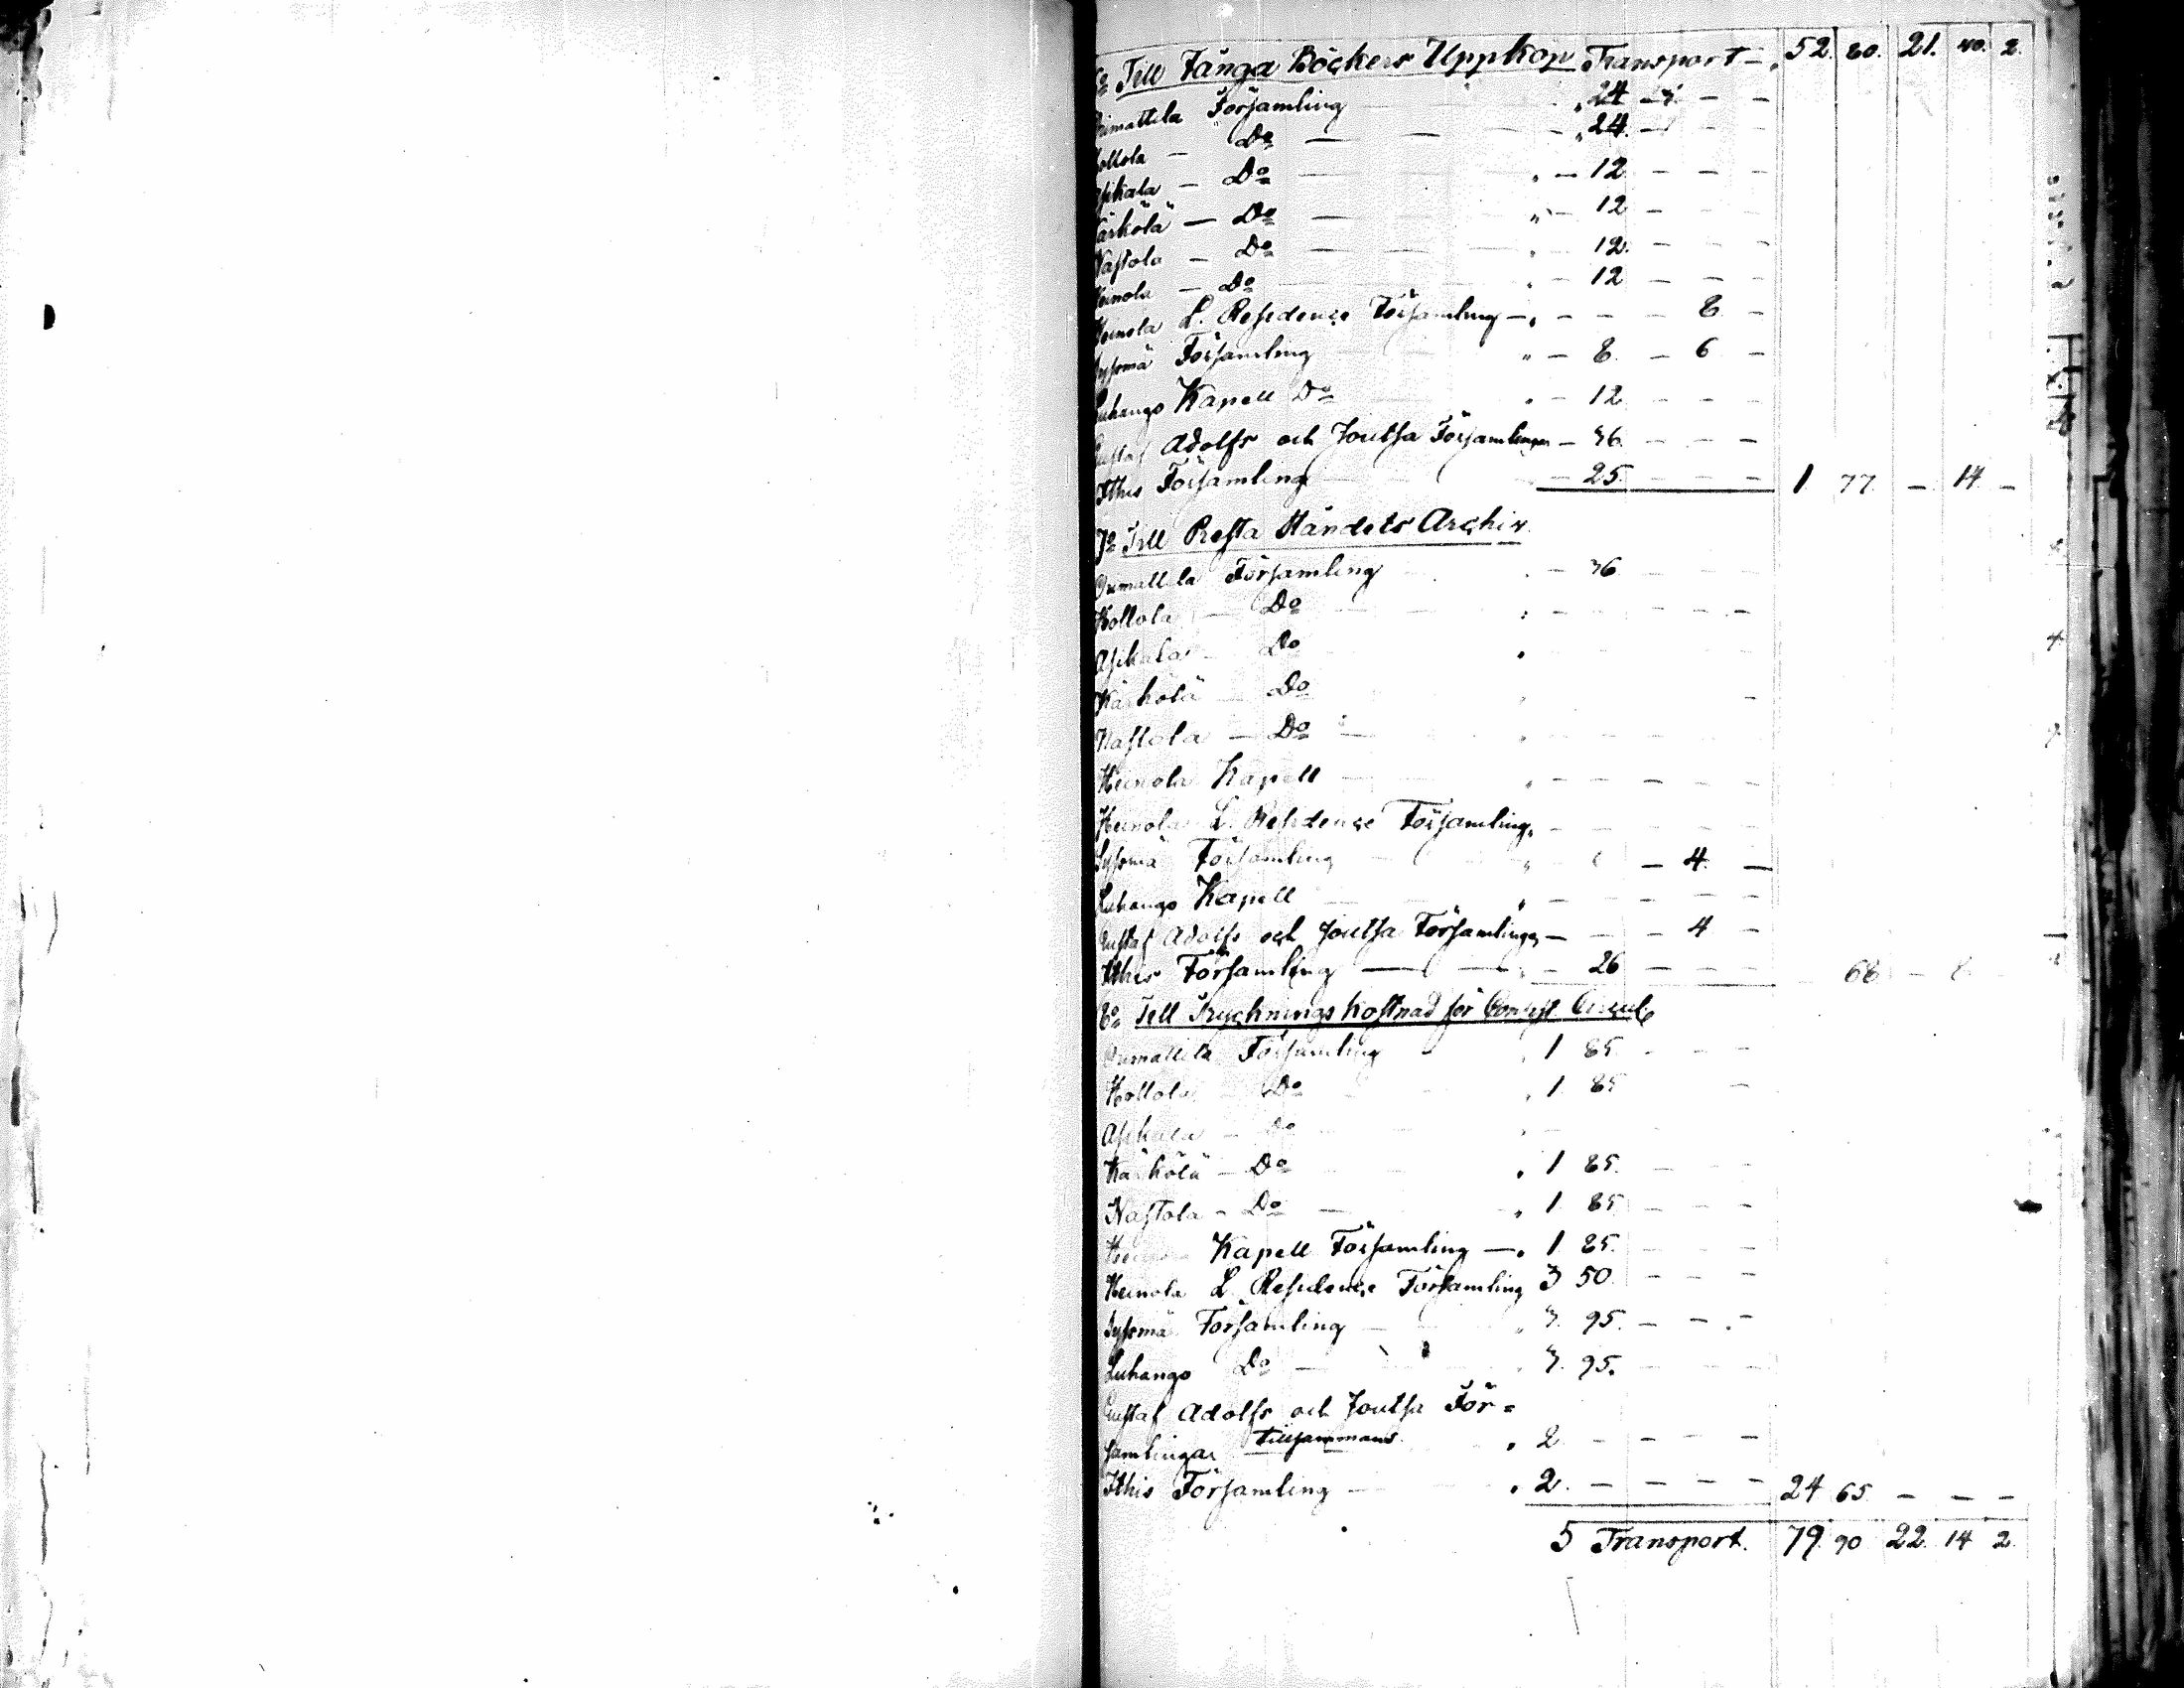 6:o Till Fånga Böckers Uppköp Transport — 52. 80. 21. 40. 2.
Orimattila Församling 24 — 3 — —
Hollola — D:o — 24. — — —
Asikkala — D:o — 12. — — —
Kärkölä — D:o — 12 — — —
Nastola — D:o — 12. — — —
Heinola — D:o — 12 — — —
Heinola L. Residence Församling — — — — 8. —
Syssmä Församling — 8. — 6 —
Luhango Kapell D:o — 12 — — —
Gustaf Adolfs och Joutsa Församlingar — 36. — — —
Ithis Församling — 25. — — — 1 77. — 14. —
7:o Till Presta Ståndets Archiv.
Orimattila Församling — 36 — — —
Hollola — D:o — — — — —
Asikala — D:o
Kärkölä D:o —
Nastola — D:o — — — — —
Heinola Kapell — — — — —
Heinola L. Residence Församling, — — — — —
Syssmä Församling — — 4. —
Luhango Kapell — — — — —
Gustaf Adolfs och Joutsa Församlingar — — — 4 —
Ithis Församling — — 26 — — — 68 — 8
8:o Till Tryknings kostnad för Consist. Circul.
Orimattila Församling 1 85. — — —
Hollola D:o 1 85 —
Asikala — D:o —
Kärkölä — D:o 1 85. — —
Nastola — D:o — 1. 85. — — —
Kapell Församling — 1. 85. — — —
Heinola L. Residence Församling 3 50. — — —
Syssmä Församling — 3. 95. — — —
Luhango D:o — 3. 95. — — —
Gustaf Adolfs och Joutsa För=
samlingar tillsammans 2 — — — —
Ithis Församling — 2. — — — — 24 65. — — —
5 Transport. 79. 90 22. 14 2.